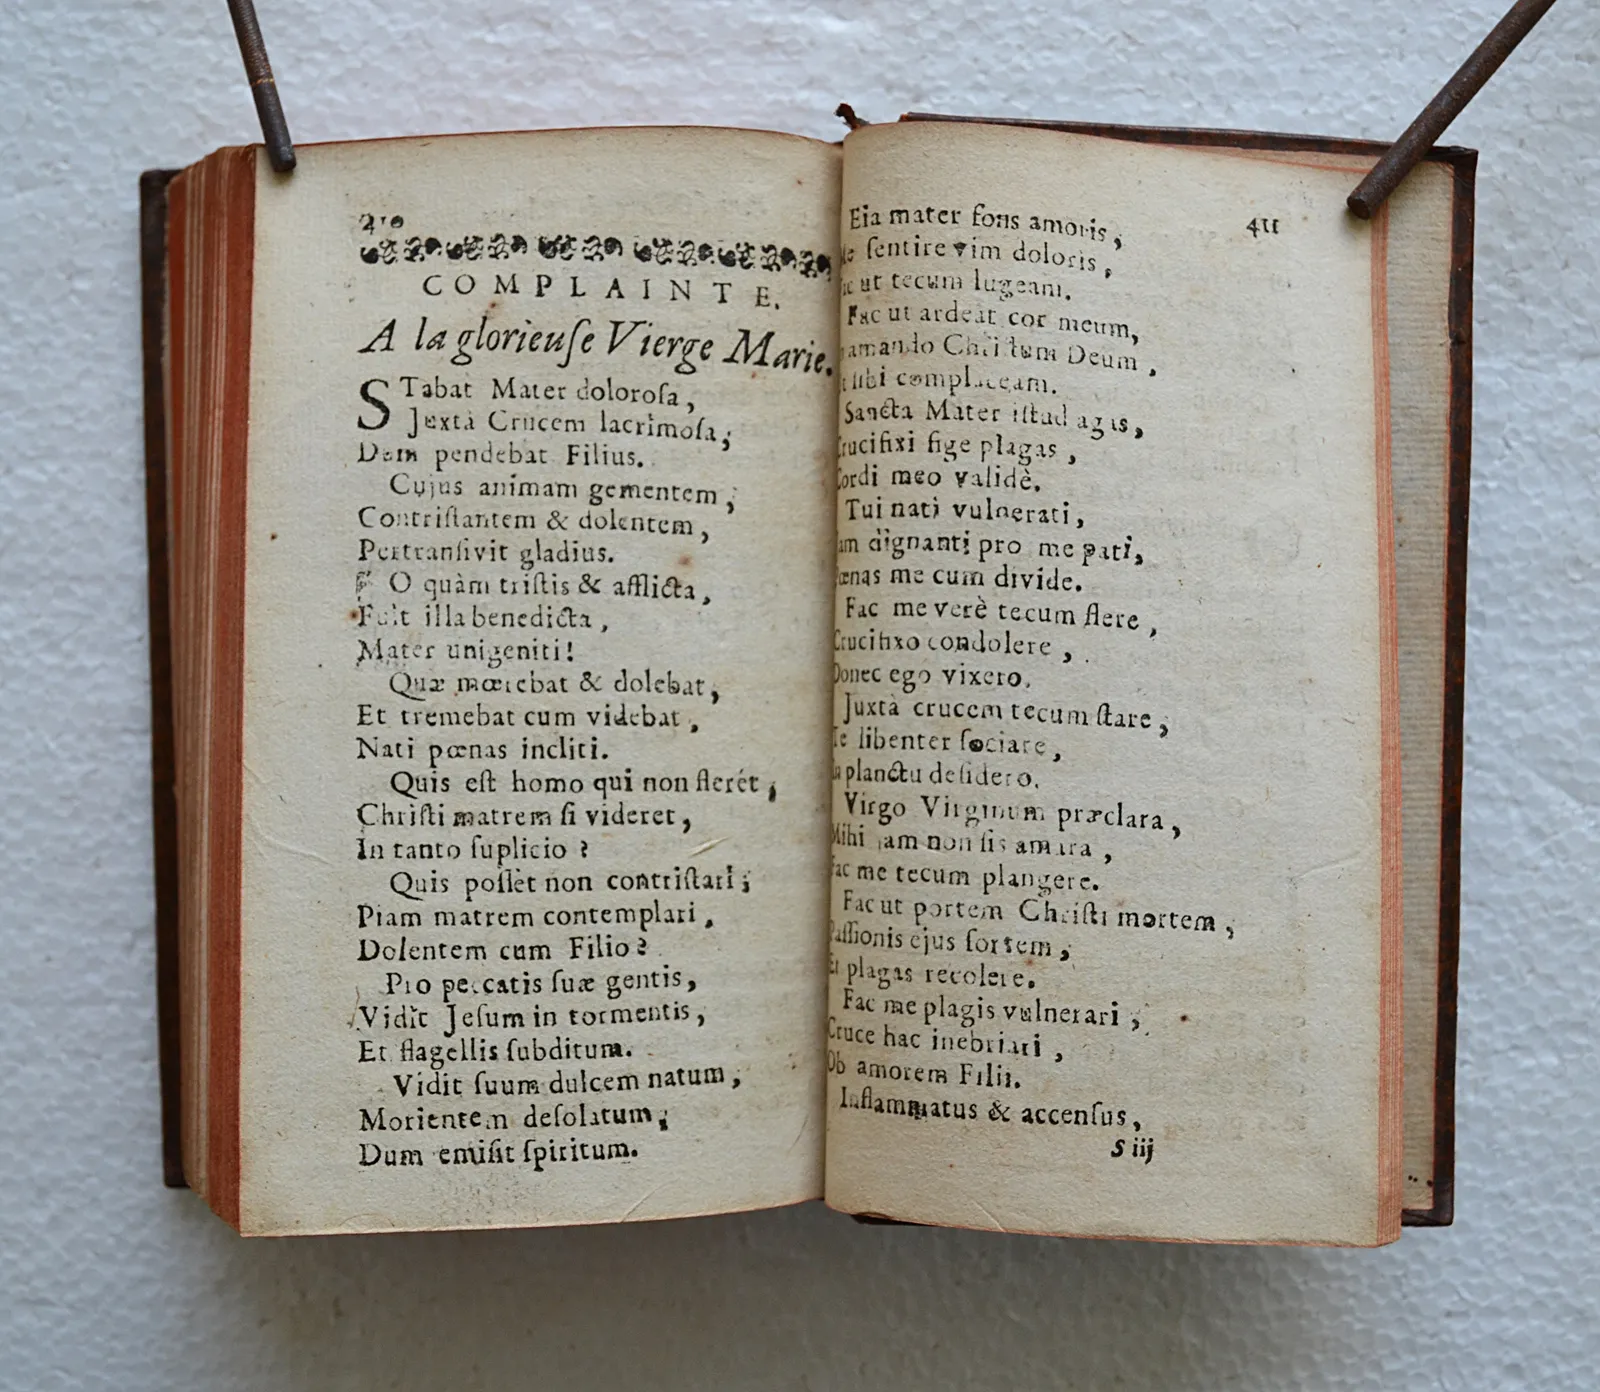 410
COMPLAINTE.
A la glorieuſe Vierge Marie.
STabat Mater doloroſa,
Juxta Crucem lacrimoſa,
Dum pendebat Filius.
Cujus animam gementem,
Contriſtantem & dolentem,
Pertranſivit gladius.
O quàm triſtis & afflicta,
Fuit illa benedicta,
Mater unigeniti!
Quæ mœrebat & dolebat,
Et tremebat cum videbat,
Nati pœnas incliti.
Quis eſt homo qui non fleret,
Chriſti matrem ſi videret,
In tanto ſuplicio?
Quis poſſet non contriſtari;
Piam matrem contemplari,
Dolentem cum Filio?
Pro peccatis ſuæ gentis,
Vidit Jeſum in tormentis,
Et flagellis ſubditum.
Vidit ſuum dulcem natum,
Morientem deſolatum;
Dum emiſit ſpiritum.
411
Eia mater fons amoris,
Me ſentire vim doloris,
Fac ut tecum lugeam.
Fac ut ardeat cor meum,
amando Chriſtum Deum,
ſibi complaceam.
Sancta Mater iſtud agas,
Crucifixi fige plagas,
Cordi meo validè.
Tui nati vulnerati,
Jam dignanti pro me pati,
Pœnas me cum divide.
Fac me verè tecum flere,
Crucifixo condolere,
Donec ego vixero.
Juxtà crucem tecum ſtare,
Te libenter ſociare,
In planctu deſidero.
Virgo Virginum præclara,
Mihi jam non ſis amara,
Fac me tecum plangere.
Fac ut portem Chriſti mortem,
Paſſionis ejus ſortem;
Et plagas recolere.
Fac me plagis vulnerari;
Cruce hac inebriari,
Ob amorem Filii.
Inflammatus & accenſus,
S iij